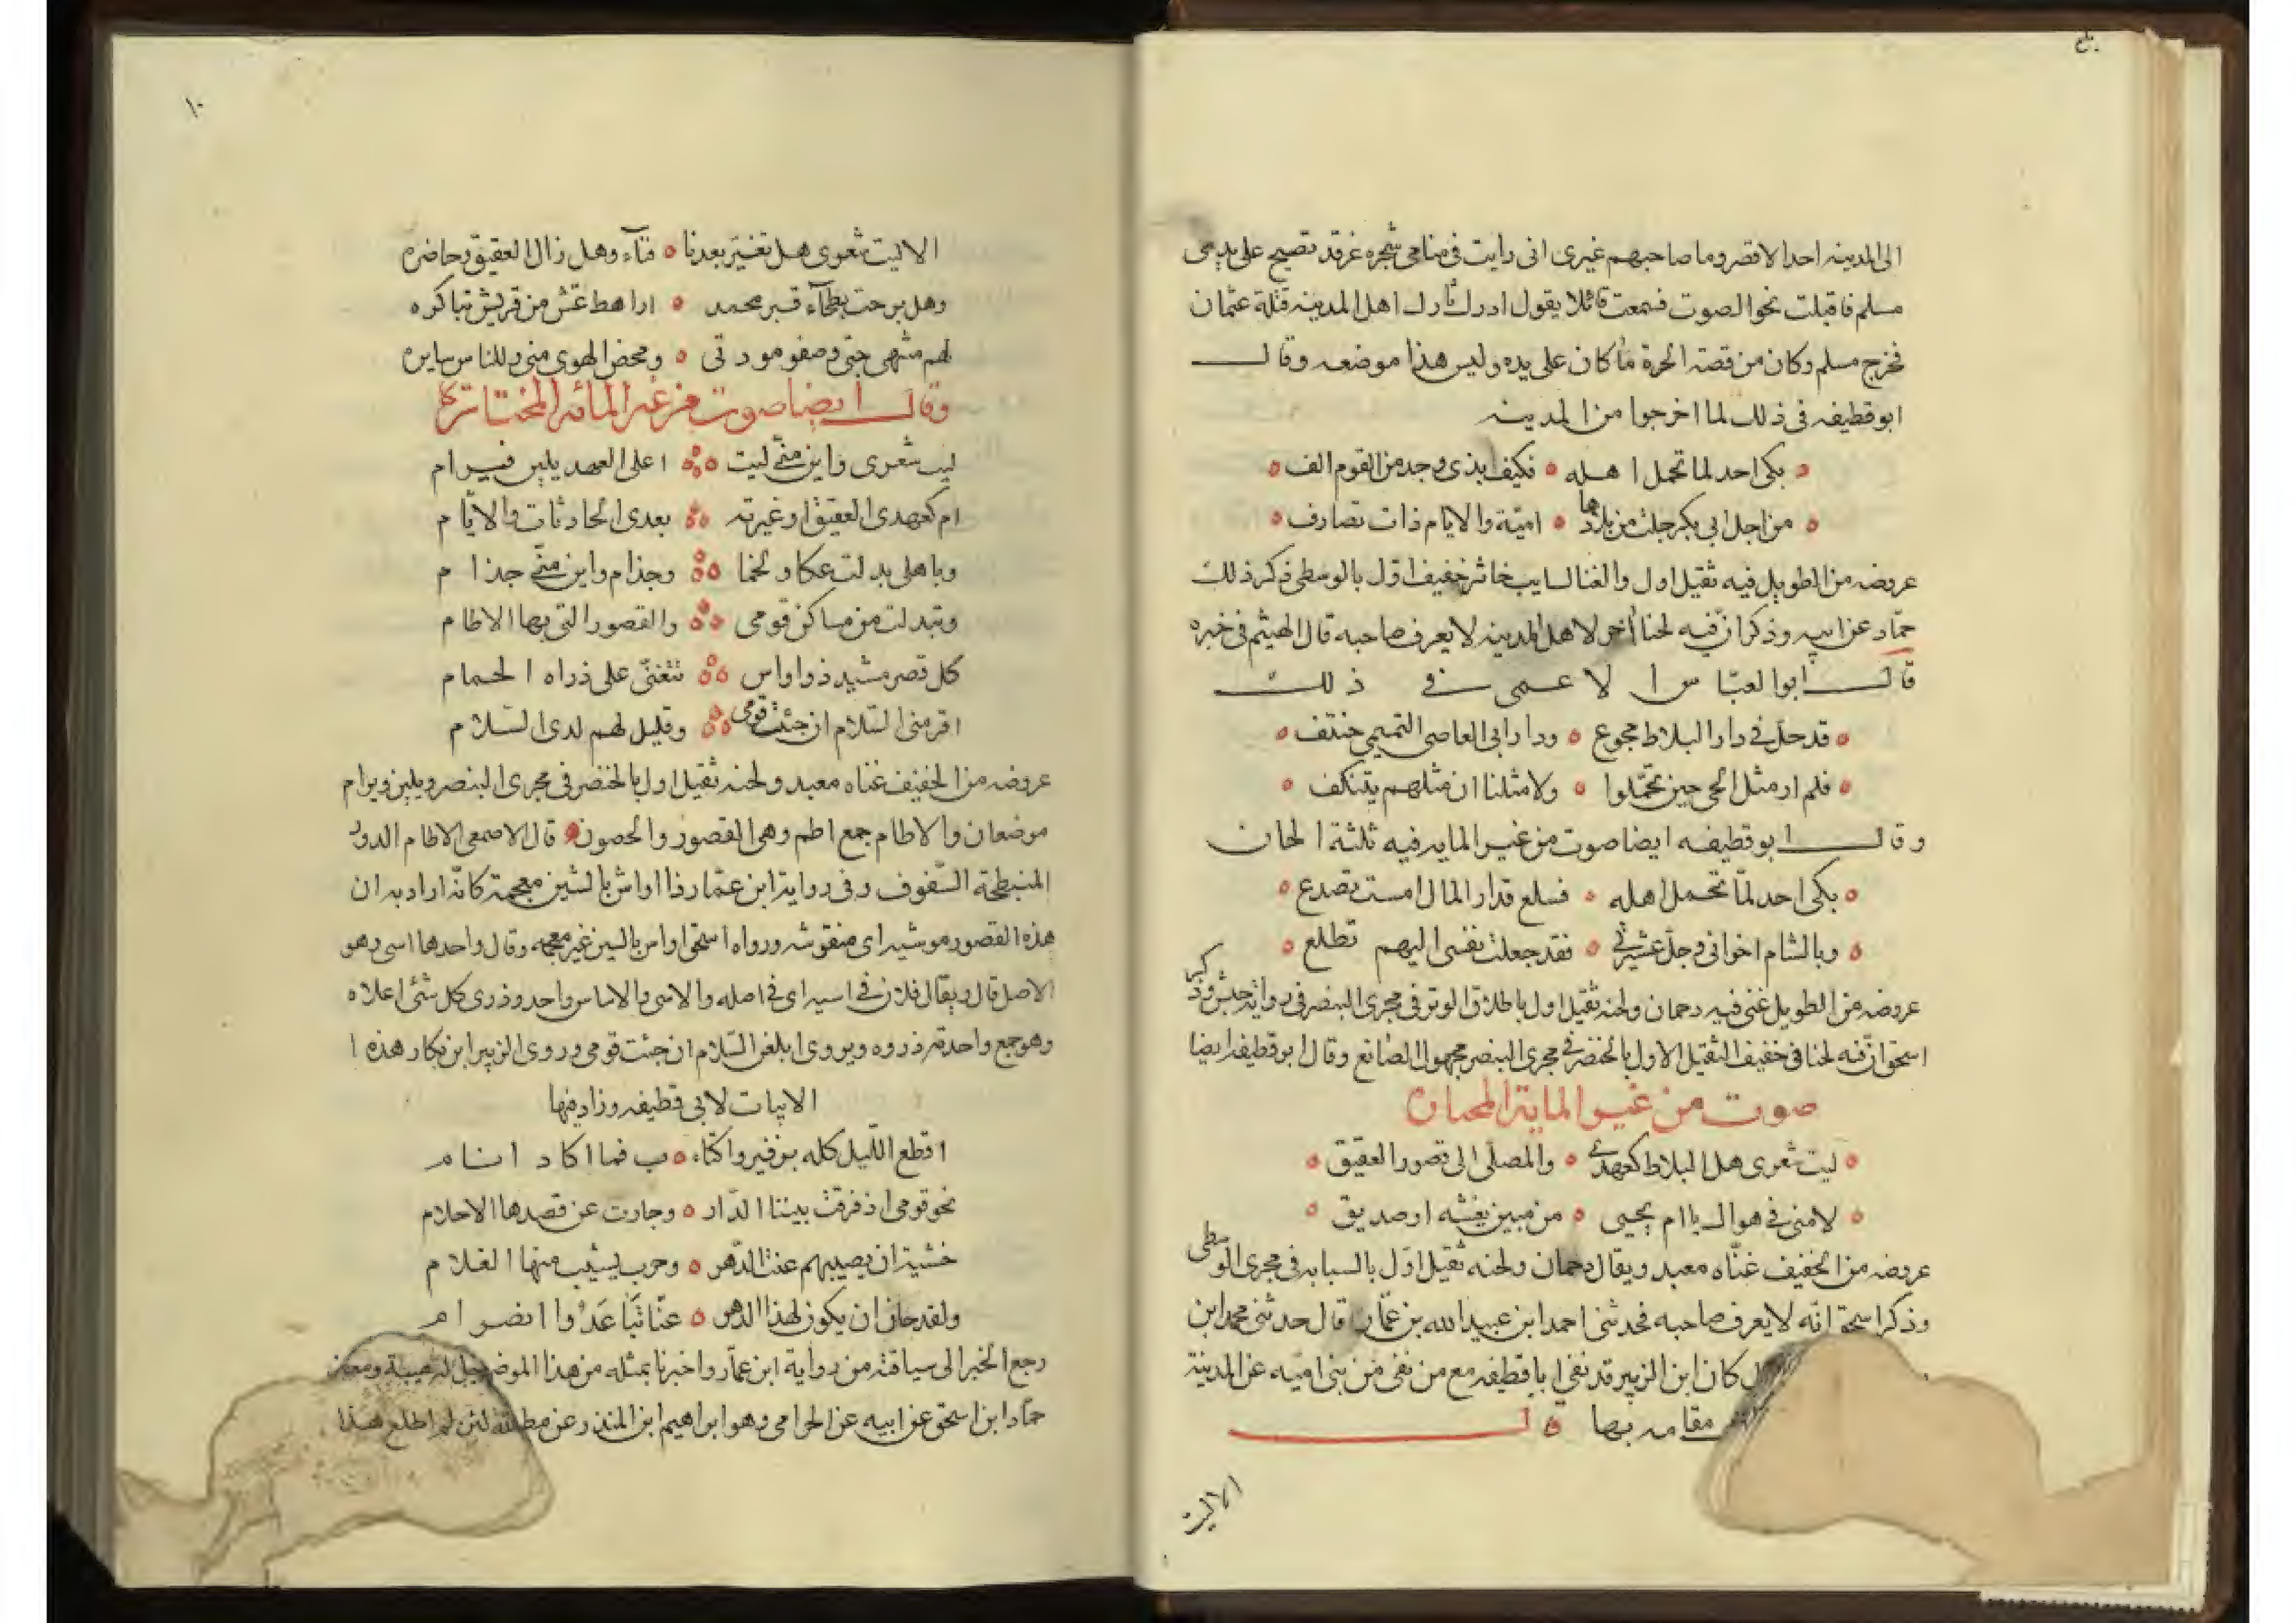 الى المدينه احدا لا قصر وما صاحبهم غيرى انى رايت فى منامى شجره غرقد تصيح على يدى
مسلم فاقبلت نحو الصوت فسمعت قائلا يقول ادرك ثارك اهل المدينه قتلة عثمان
فخرج مسلم وكان من قصة الحرة ما كان على يده وليس هذا موضعه وقال
ابو قطيفه فى ذلك لما اخرجوا من المدينه
بكى احد لما تحمل اهله ٥ فكيف بذى وجد من القوم الف ٥
من اجل ابى بكر جلت من بلادها ٥ اميّة والايام ذات تصارف ٥
عروضه من الطويل فيه ثقيل اول والغنا لسايب خاثر خفيف اوّل بالوسطى ذكر ذلك
حمّاد عن ابيه وذكر انّ فيه لحنا آخر لاهل المدينه لا يعرف صاحبه قال الهيثم فى خبره
قال ابو العبّاس الاعمى فى ذلك
٥ قد حلّ فى دار البلاط مجوع ٥ ودار ابى العاصى التميمى حنتف ٥
٥ فلم ار مثل الحى حين تحمّلوا ٥ ولا مثلنا ان مثلهم يتنكف ٥
وقال ابو قطيفه ايضا صوت من غير المايه فيه ثلثة الحان
٥ بكى احد لمّا تحمل اهله ٥ فسلع فدار المال امست تصدع ٥
٥ وبالشام اخوانى وجلّ عشيرتى ٥ فقد جعلت نفسى اليهم تطلع ٥
عروضه من الطويل غنى فيه دحمان ولحنه ثقيل اول باطلاق الوتر فى مجرى البنصر فى رواية حبش وذكر
اسحق انّ فيه لحنا فى خفيف الثقيل الاول بالخنصر فى مجرى البنصر مجهول الصانع وقال ابو قطيفه ايضا
صوت من غير الماية المختارة
٥ ليت شعرى هل البلاط كعهدى ٥ والمصلى الى قصور العقيق ٥
٥ لامنى فى هواك يا ام يحيى ٥ من مبين بغشه او صديق ٥
عروضه من الخفيف غنّاه معبد ويقال دحمان ولحنه ثقيل اوّل بالسبابه فى مجرى الوسطى
وذكر اسحق انّه لا يعرف صاحبه فحدثنى احمد ابن عبيد الله بن عمّار قال حدثنى محمد ابن
كان ابن الزبير قد نفى ابا قطيفه مع من نفى من بنى اميّه عن المدينة
مقامه بها ٥
الاليت
١٠
الا ليت شعرى هل تغيّر بعدنا ٥ قبآء وهل زال العقيق وحاضره
وهل برحت بطحآء قبر محمد ٥ اراهط غش من قريش تباكره
لهم منتهى حبى وصفو مودتى ٥ ومحض الهوى منى وللناس سايره
وقال ايضا صوت من غير المائه المختارة
ليت شعرى واين منّى ليت ٥ اعلى العهد يلبن فبرام
ام كعهدى العقيق ام غيرته ٥ بعدى الحادثات والايّام
وباهلى بدلت عكا ولخما ٥ وجذام واين منّى جذام
وتبدلت من مساكن قومى ٥ والقصور التى بها الاطام
كل قصر مشيد ذو اواس ٥ تتغنّى على ذراه الحمام
اقر منى السّلام ان جئت قومى ٥ وقليل لهم لدى السّلام
عروضه من الخفيف غناه معبد ولحنه ثقيل اول بالخنصر فى مجرى البنصر ويلبن وبرام
موضعان والاطام جمع اطم وهى القصور والحصون ٥ قال الاصمعى الاطام الدور
المنبطحة السّقوف وفى رواية ابن عمّار ذا اواش بالشين معجمة كانّه اراد به ان
هذه القصور موشيه اى منقوشه ورواه اسحق اواس بالسين غير معجمه وقال واحدها اسى وهو
الاصل قال ويقال فلان فى اسيه اى فى اصله والاسى والاساس واحد وذرى كل شئ اعلاه
وهو جمع واحدته ذروه ويروى ابلغن السّلام ان جئت قومى وروى الزبير ابن بكار هذه ا
الابيات لابى قطيفه وزاد فيها
اقطع اللّيل كله بزفير واكتئا ٥ ب فما اكاد انام
نحو قومى اذ فرقت بيننا الدّار ٥ وجارت عن قصدها الاحلام
خشية ان يصيبهم عنت الدّهر ٥ وحرب يشيب منها الغلام
ولقد حان ان يكون لهذا الدهر ٥ عنّا تباعدٌ وانصرام
رجع الخبر الى سياقته من رواية ابن عمّار واخبرنا بمثله من هذا الموضع
حمّاد ابن اسحق عن ابيه عن الحزامى وهو ابراهيم ابن المنذر عن